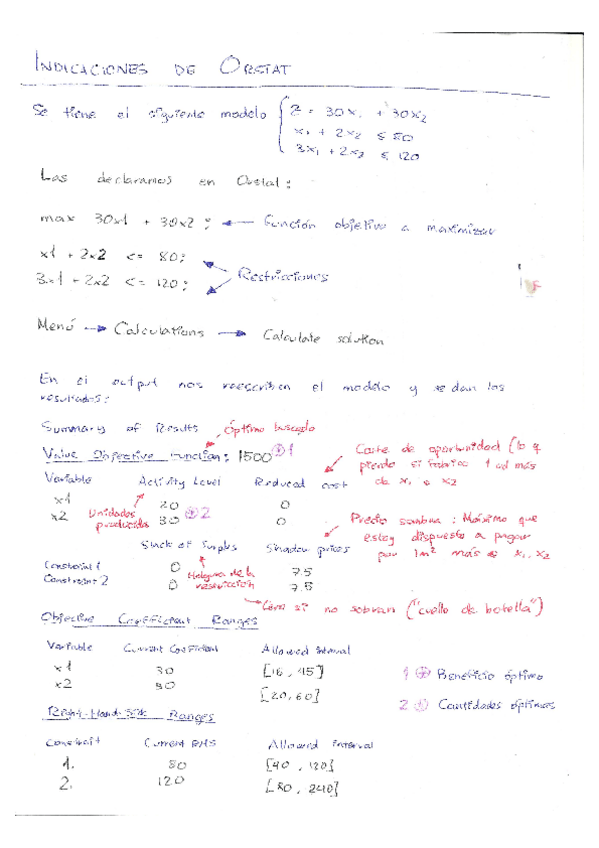 INDICACIONES DE ORSTAT
Se tiene el siguiente modelo { Z = 30x1 + 30x2
x1 + 2x2 ≤ 80
3x1 + 2x2 ≤ 120
Las declaramos en Orstat:
max 30x1 + 30x2 ; ← Función objetivo a maximizar
x1 + 2x2 <= 80;
3x1 + 2x2 <= 120;
Restricciones
Menú → Calculations → Calculate solution
En el output nos reescriben el modelo y se dan los
resultados:
Summary of Results
Óptimo buscado
Value Objective Function: 1500 1
Coste de oportunidad (lo q
pierdo si fabrico 1 ud más
de x1 o x2
Variable Activity Level Reduced cost
x1 20 0
x2 30 0
Unidades
producidas
2
Precio sombra: Máximo que
estoy dispuesto a pagar
por 1m² más x1, x2
Slack or Surplus Shadow prices
Constraint 1 0 7.5
Constraint 2 0 7.5
Holgura de la
restricción
Cero si no sobran ("cuello de botella")
Objective Coefficient Ranges
Variable Current Coefficient Allowed interval
x1 30 [15, 45]
x2 30 [20, 60]
1 Beneficio óptimo
2 Cantidades óptimas
Right-Hand-Side Ranges
Constrait Current RHS Allowed interval
1. 80 [40, 120]
2. 120 [80, 240]